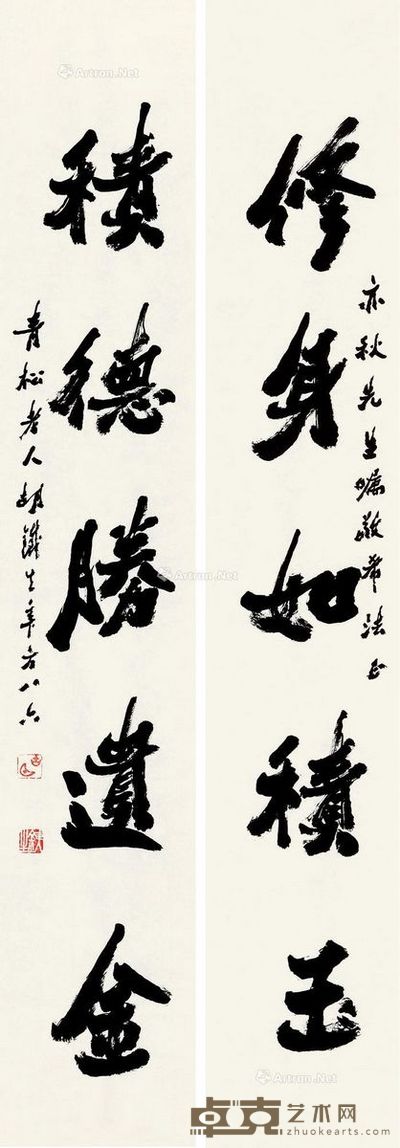 修身如積玉
亦秋先生嘱敬希法正
積德勝遺金
青松老人胡鐵生年方八六
Artron.Net
Artron.Net
Artron.Net
卓克艺术网
zhuokearts.com